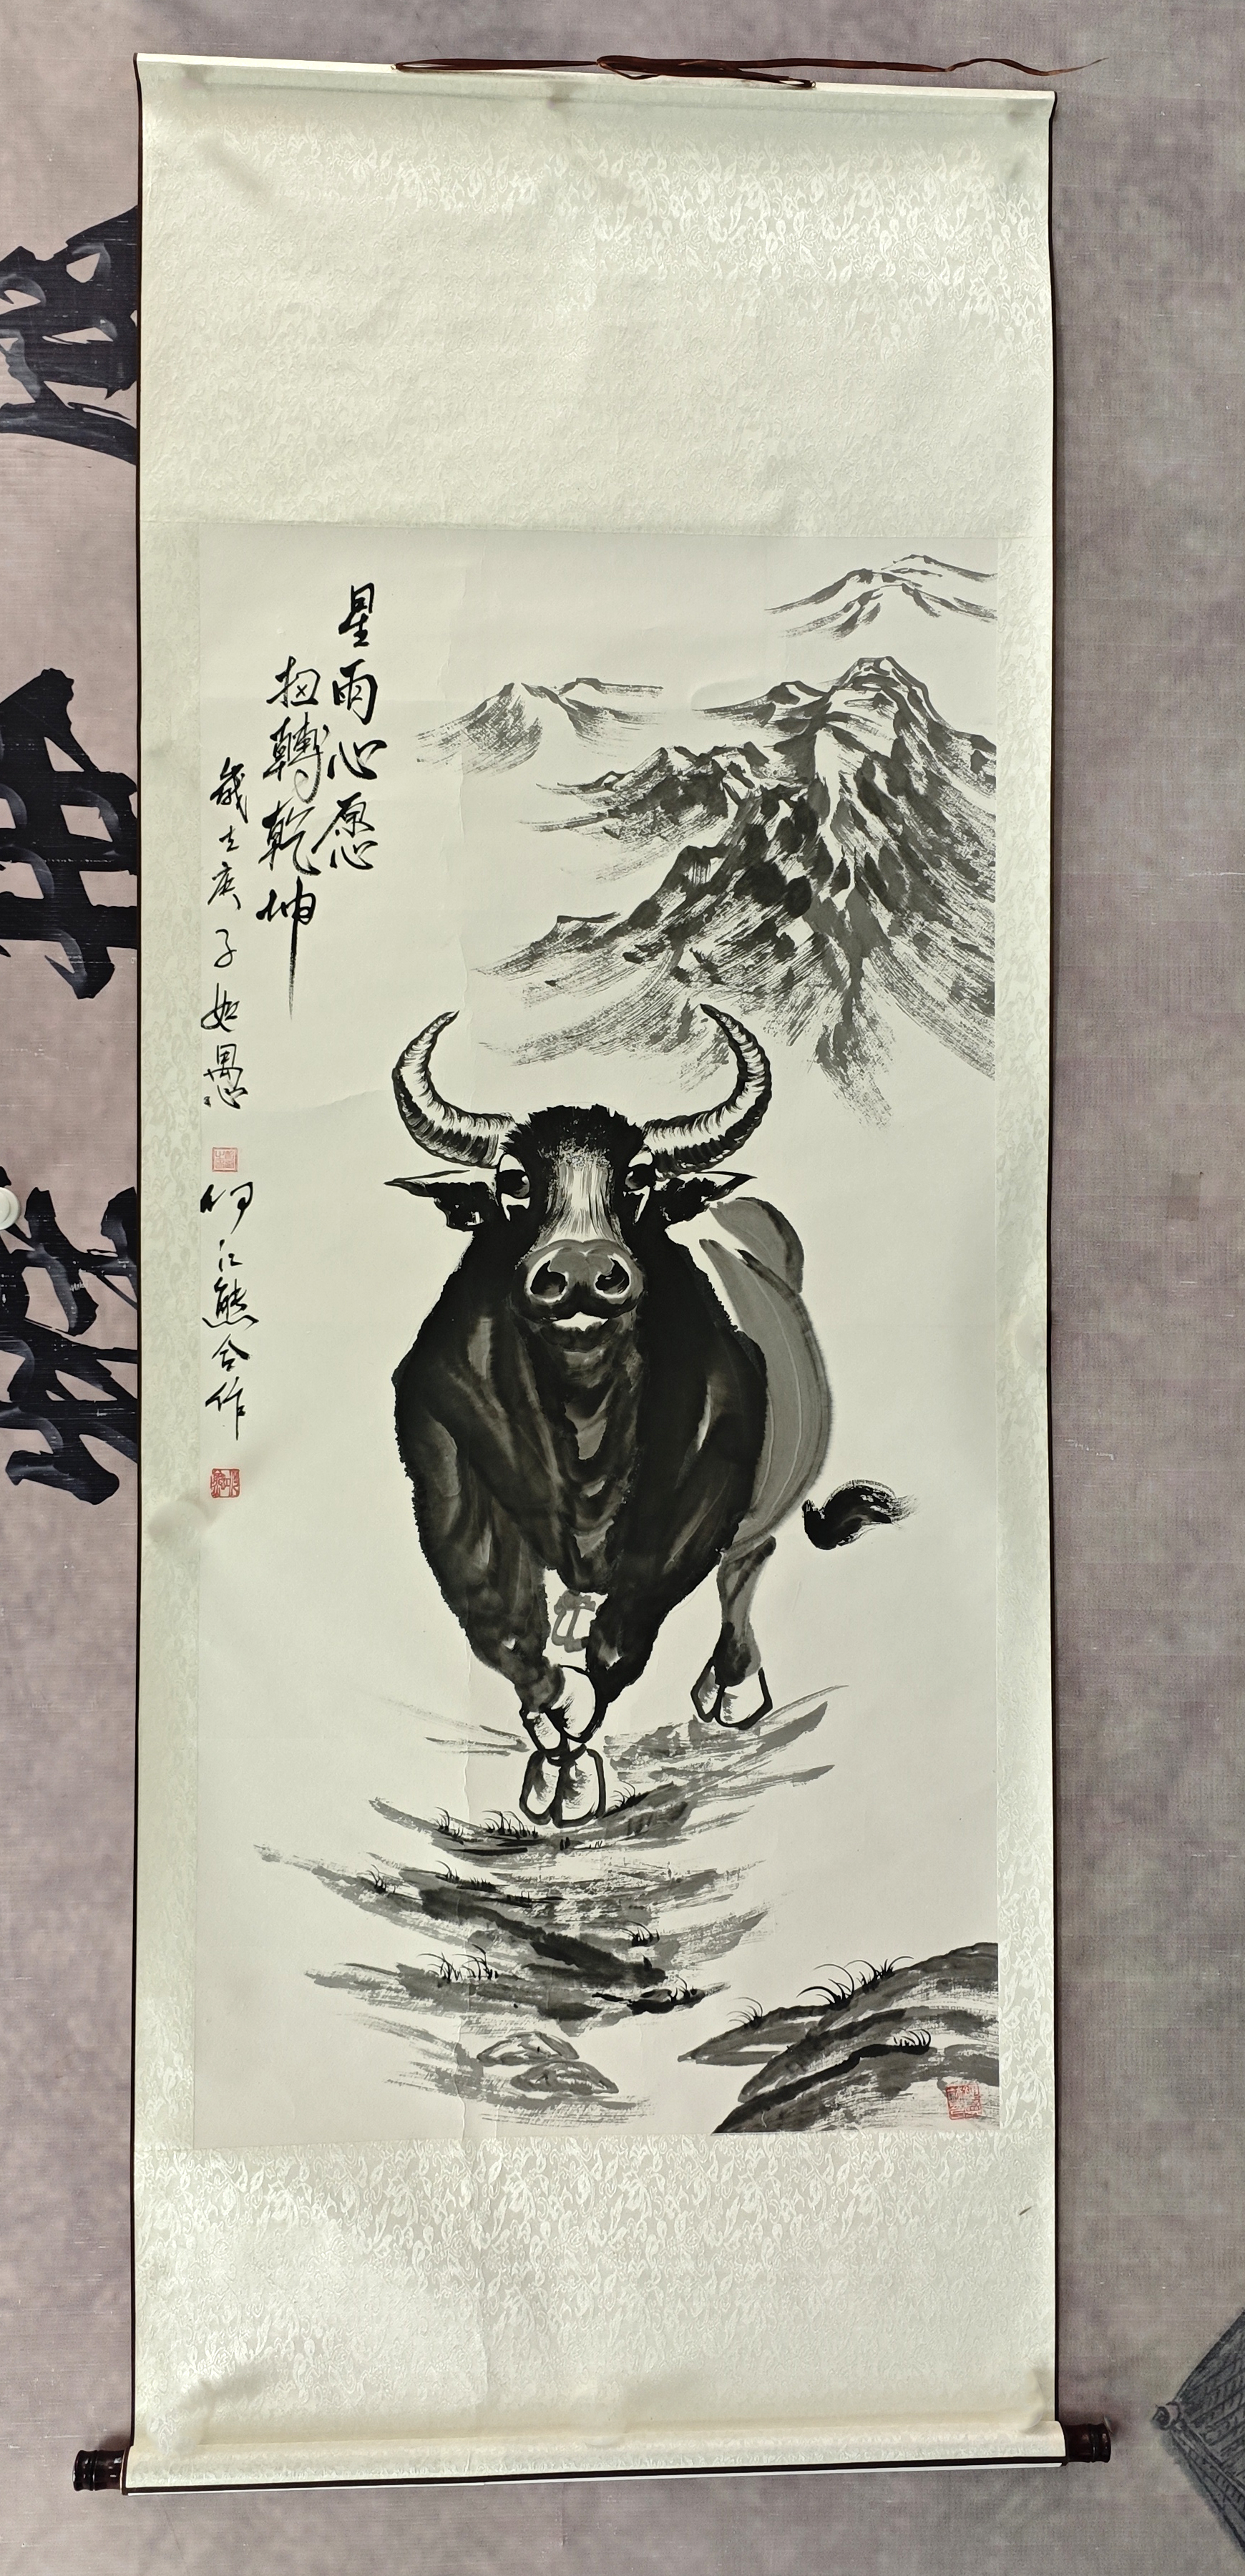 星雨心愿
扭轉乾坤
歲在庚子如愚
何江熊合作